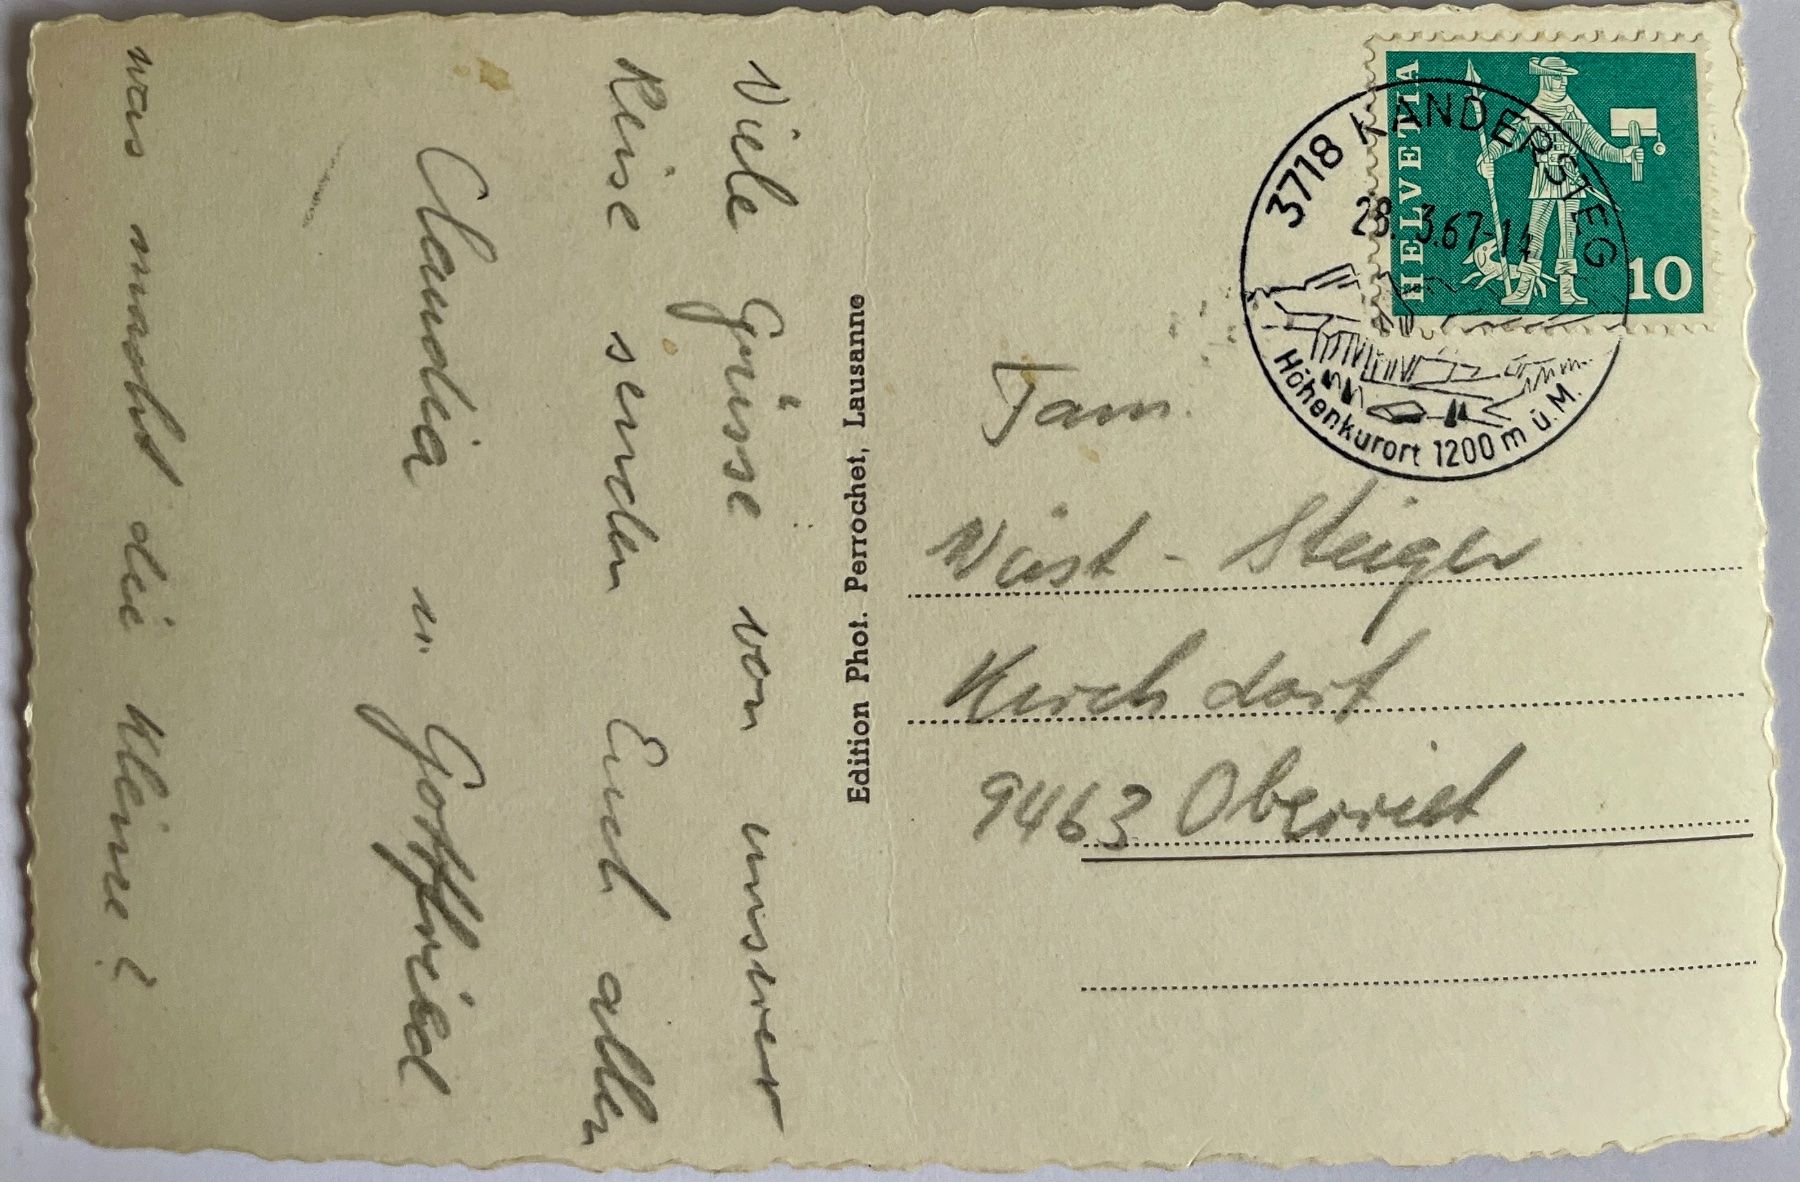 Viele Grüsse von unserer
Reise senden Euch allen
Claudia u. Gottfried
was macht die Kleine?
Edition Phot. Perrochet, Lausanne
HELVETIA
10
3718 KANDERSTEG
28. 3.67-14
Höhenkurort 1200 m ü. M.
Fam.
Wüst - Steiger
Kirchdorf
9463 Oberriet